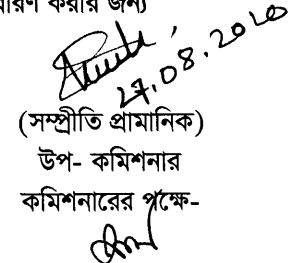 করার জন্য
27.08.2020
(সম্প্রীতি প্রামানিক)
উপ- কমিশনার
কমিশনারের পক্ষে-